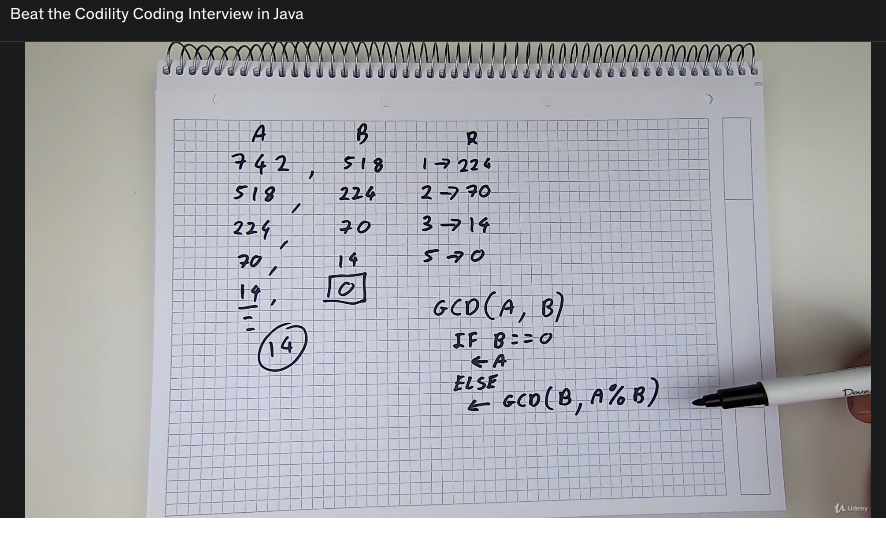 Beat the Codility Coding Interview in Java
A B R
742 , 518 1 → 224
518 , 224 2 → 70
224 , 70 3 → 14
70 , 14 5 → 0
14 , 0
14
GCD(A, B)
IF B==0
← A
ELSE
← GCD(B, A%B)
Udemy